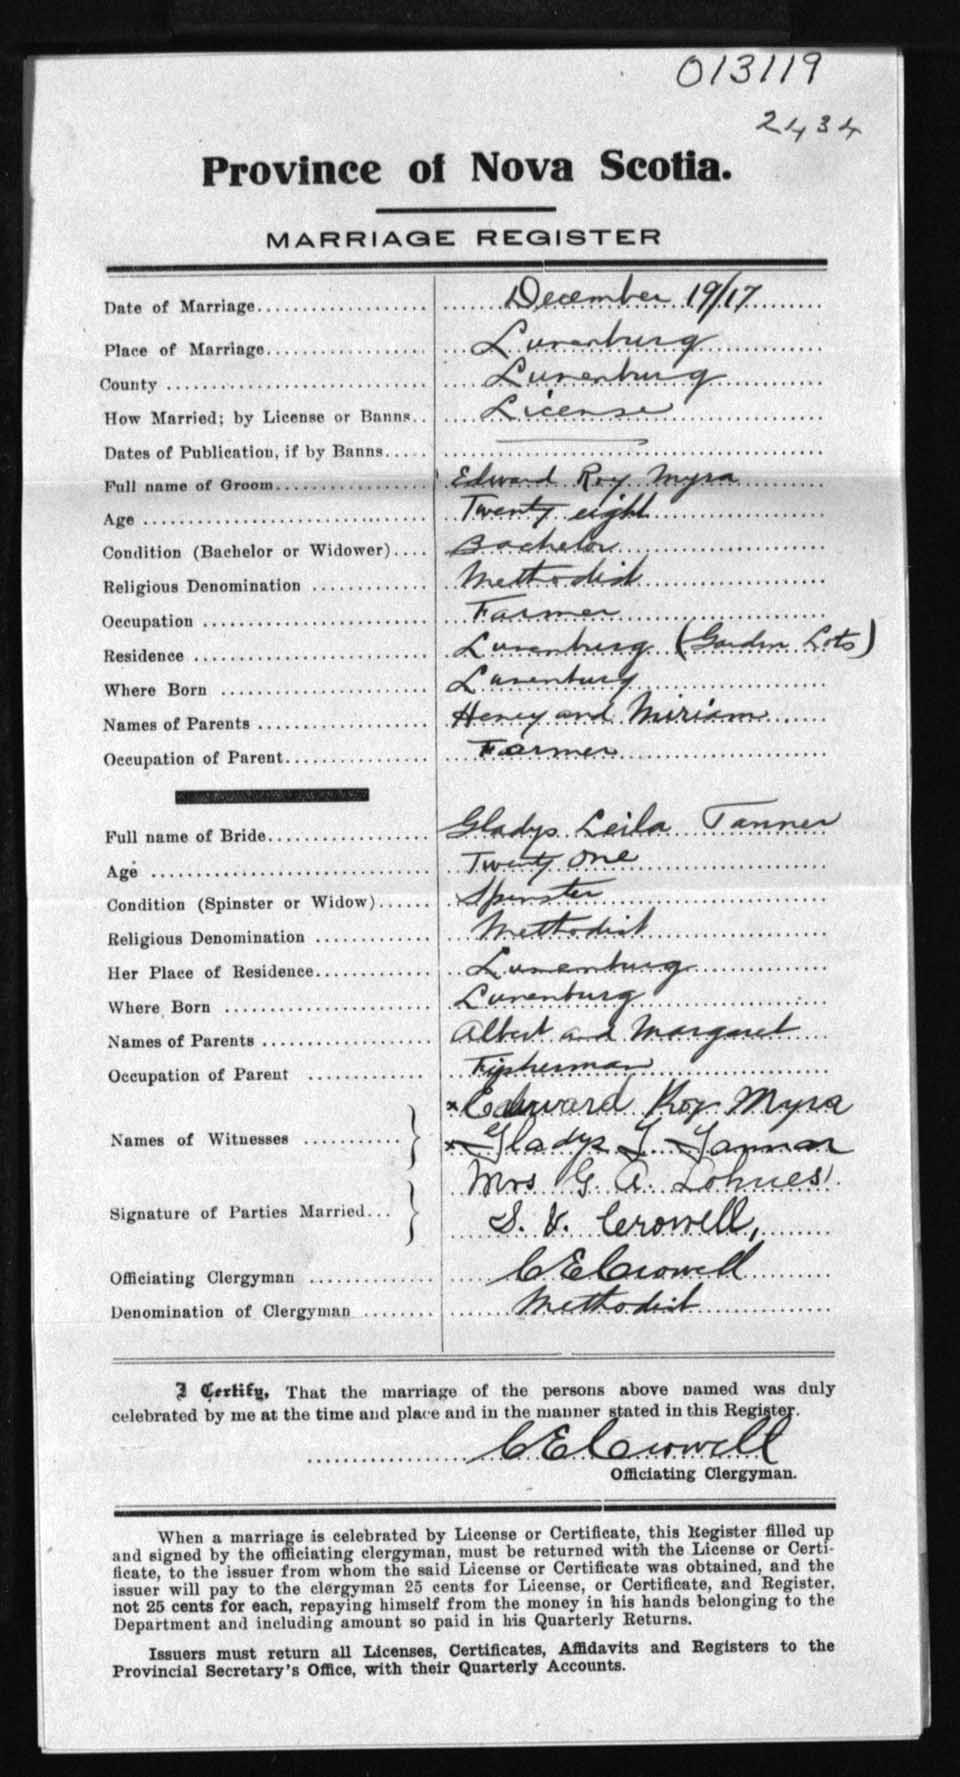 013119
2434
Province of Nova Scotia.
MARRIAGE REGISTER
Date of Marriage................... December 19/17
Place of Marriage.................. Lunenburg
County ............................ Lunenburg
How Married; by License or Banns.. License
Dates of Publication, if by Banns.....
Full name of Groom................. Edward Roy Myra
Age ............................... Twenty eight
Condition (Bachelor or Widower).... Bachelor
Religious Denomination ............ Methodist
Occupation ........................ Farmer
Residence ......................... Lunenburg (Garden Lots)
Where Born ........................ Lunenburg
Names of Parents .................. Henry and Miriam
Occupation of Parent............... Farmer
Full name of Bride................. Gladys Leila Tanner
Age ............................... Twenty One
Condition (Spinster or Widow)...... Spinster
Religious Denomination ............ Methodist
Her Place of Residence............. Lunenburg
Where Born ........................ Lunenburg
Names of Parents .................. Albert and Margaret
Occupation of Parent .............. Fisherman
x Edward Roy Myra
Names of Witnesses ........... } x Gladys L. Tanner
Mrs G. A. Lohnes
Signature of Parties Married... } S. V. Crowell,
Officiating Clergyman ............. C E Crowell
Denomination of Clergyman ........ Methodist
I Certify, That the marriage of the persons above named was duly
celebrated by me at the time and place and in the manner stated in this Register.
C E Crowell
Officiating Clergyman.
When a marriage is celebrated by License or Certificate, this Register filled up
and signed by the officiating clergyman, must be returned with the License or Certi-
ficate, to the issuer from whom the said License or Certificate was obtained, and the
issuer will pay to the clergyman 25 cents for License, or Certificate, and Register,
not 25 cents for each, repaying himself from the money in his hands belonging to the
Department and including amount so paid in his Quarterly Returns.
Issuers must return all Licenses, Certificates, Affidavits and Registers to the
Provincial Secretary's Office, with their Quarterly Accounts.